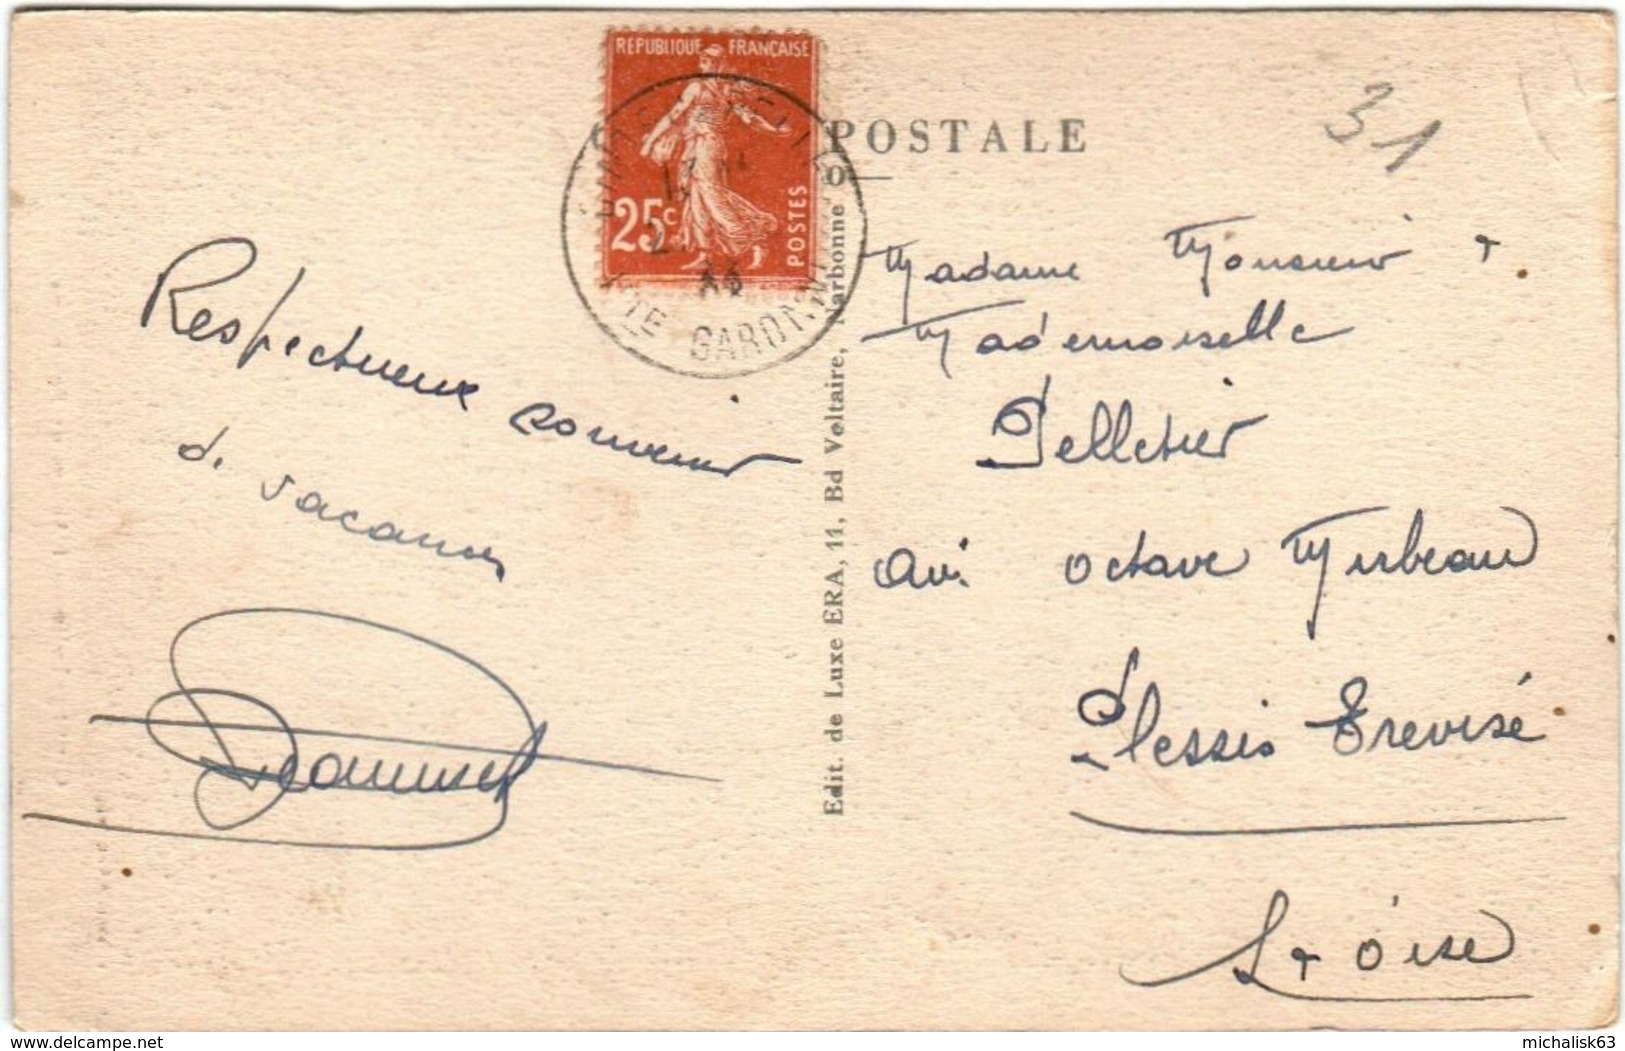 REPUBLIQUE FRANÇAISE
25c
POSTES
HTE GARONNE
POSTALE
31
Respectueux souvenir
de vacances
Madame Monsieur +
Mademoiselle
Pelletier
Av. Octave Mirbeau
Plessis Trevise
S + Oise
Edit. de Luxe ERA, 11, Bd Voltaire, Narbonne
www.delcampe.net
michalisk63